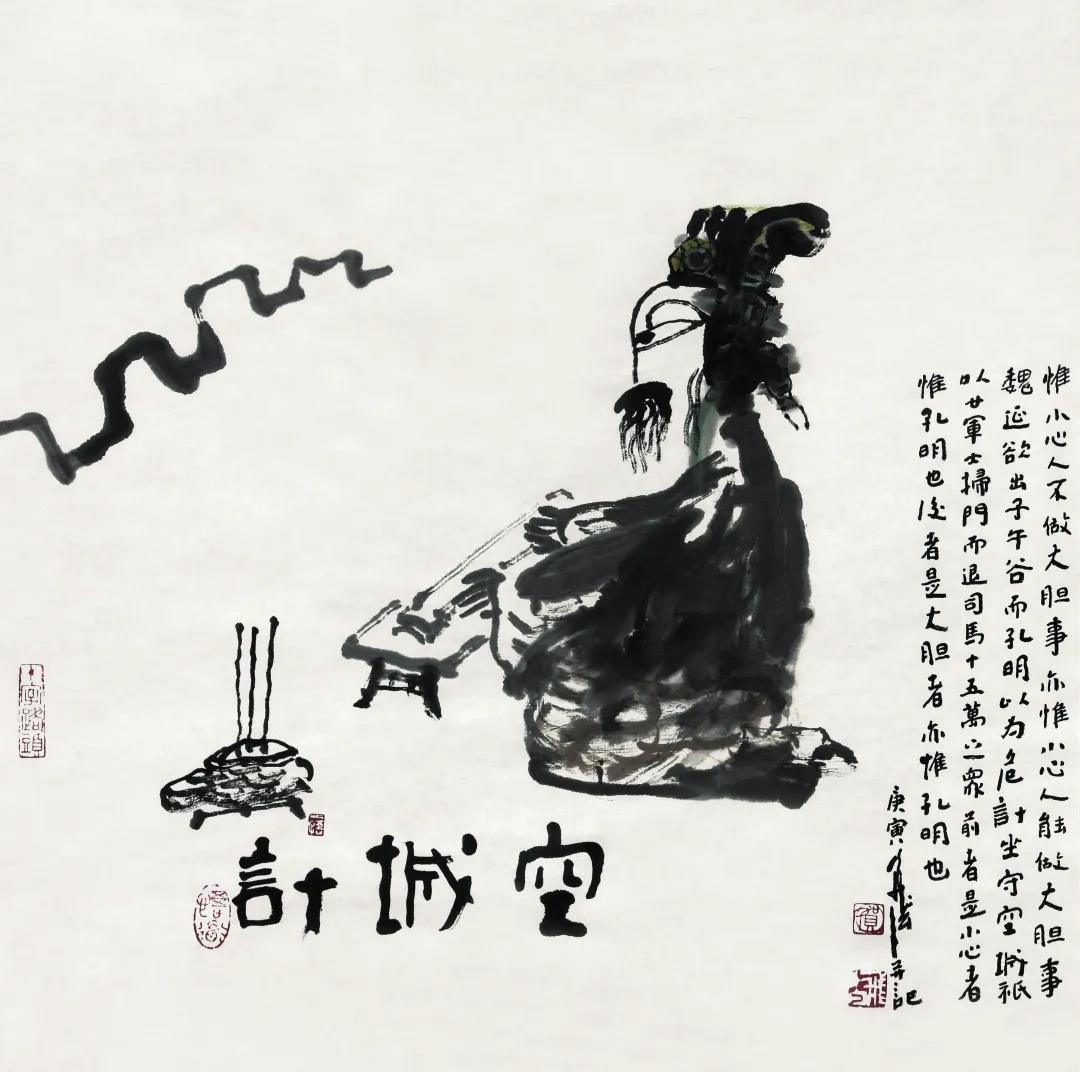 惟小心人不做大胆事亦惟小心人能做大胆事
魏延欲出子午谷而孔明以为危計坐守空城祇
以廿軍士掃門而退司馬十五萬之眾前者是小心者
惟孔明也後者是大胆者亦惟孔明也
庚寅
并記
空城計
十字路頭